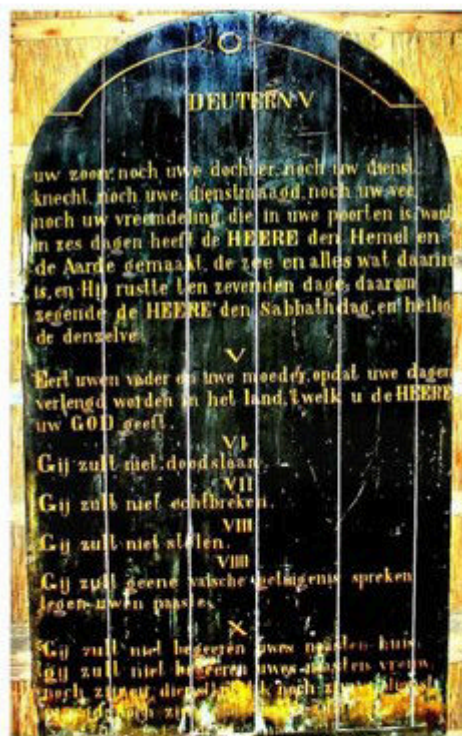 DEUTERN V
uw zoon, noch uwe dochter, noch uw dienst
knecht, noch uwe dienstmaagd, noch uw vee,
noch uw vreemdeling die in uwe poorten is, want
in zes dagen heeft de HEERE den Hemel en
de Aarde gemaakt, de zee en alles wat daarin
is, en Hij rustte ten zevenden dage, daarom
zegende de HEERE den Sabbathdag, en heilig
de denzelve.
V
Eert uwen vader en uwe moeder, opdat uwe dagen
verlengd worden in het land, 't welk u de HEERE
uw GOD geeft.
VI
Gij zult niet doodslaan.
VII
Gij zult niet echtbreken.
VIII
Gij zult niet stelen.
VIIII
Gij zult geene valsche getuigenis spreken
tegen uwen naaste.
X
Gij zult niet begeeren uwes naasten huis,
gij zult niet begeeren uwes naasten vrouw,
noch zijnen noch